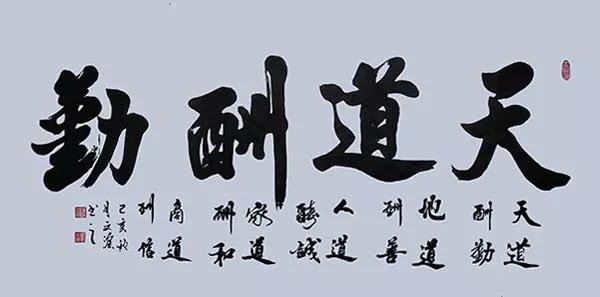 天道酬勤
天道
酬勤
地道
酬善
人道
酬誠
家道
酬和
商道
酬信
己亥秋
月
书之